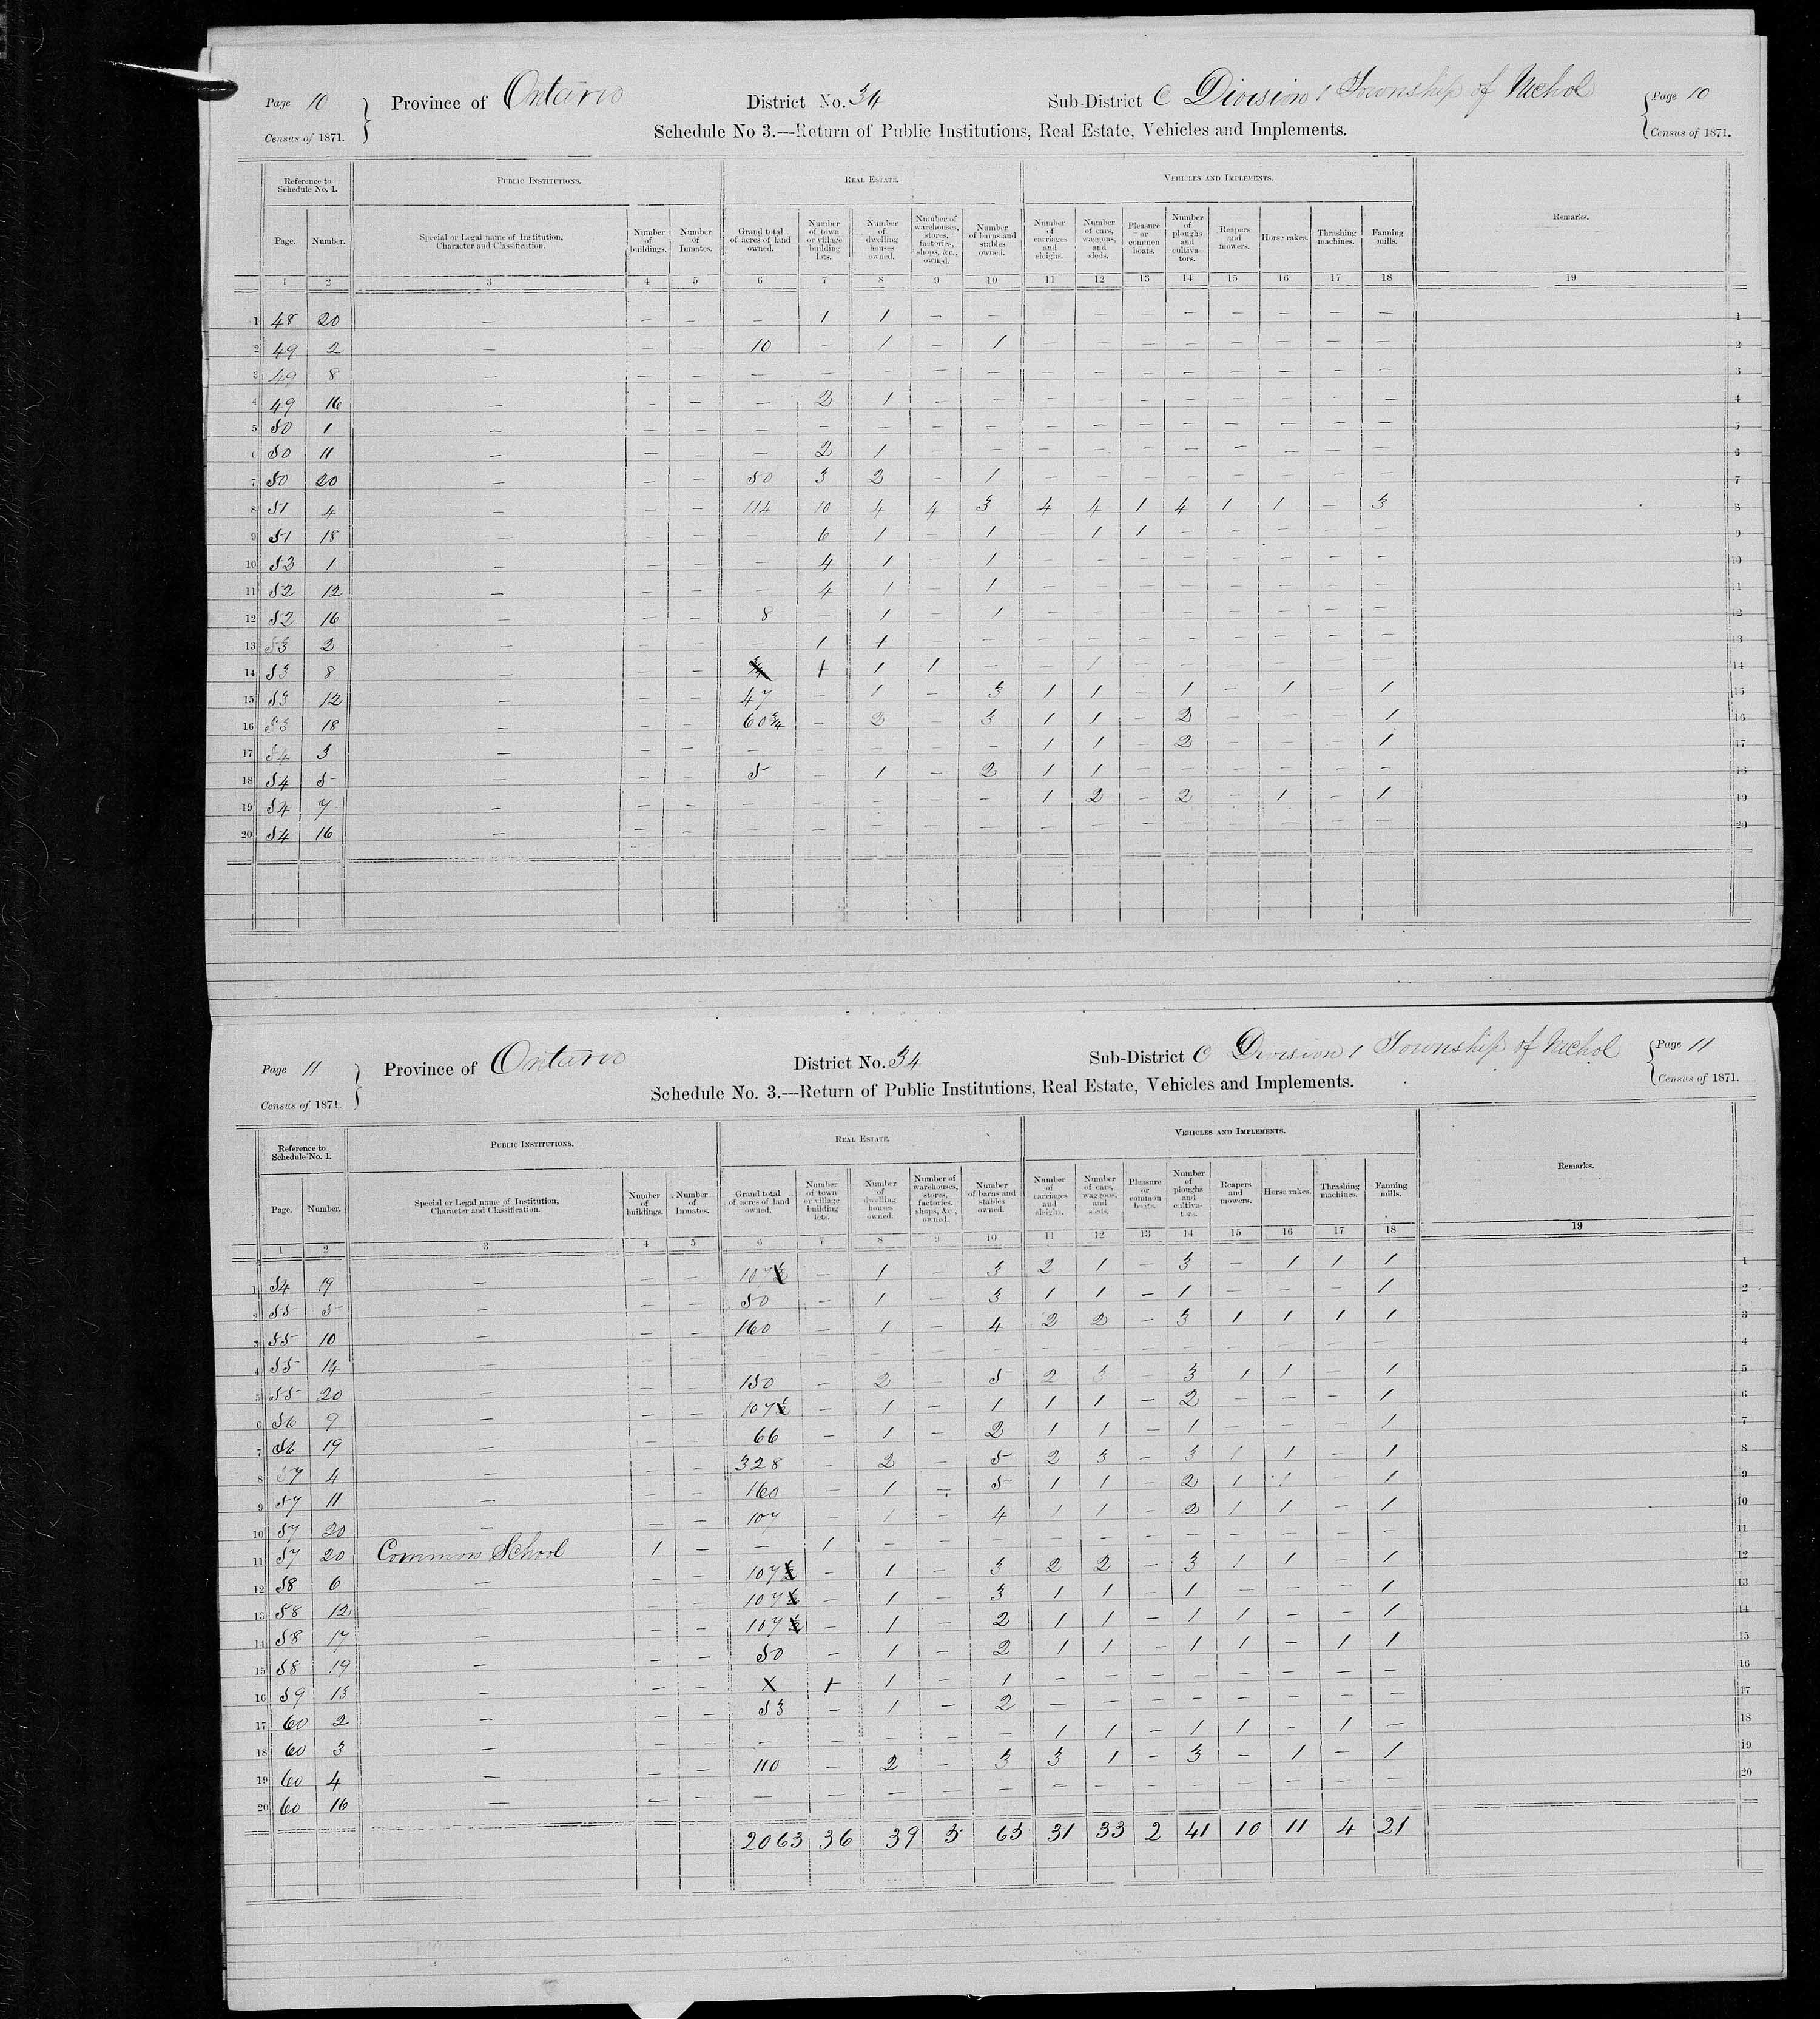 Page 10 Province of Ontario District No. 34 Sub-District C Division 1 Township of Nichol Page 10
Census of 1871. Schedule No 3.---Return of Public Institutions, Real Estate, Vehicles and Implements. Census of 1871.
Reference to Schedule No. 1. PUBLIC INSTITUTIONS. REAL ESTATE. VEHICLES AND IMPLEMENTS. Remarks.
Page. Number. Special or Legal name of Institution, Character and Classification. Number of buildings. Number of Inmates. Grand total of acres of land owned. Number of town or village building lots. Number of dwelling houses owned. Number of warehouses, stores, factories, shops, &c., owned. Number of barns and stables owned. Number of carriages and sleighs. Number of cars, waggons, and sleds. Pleasure or common boats. Number of ploughs and cultivators. Reapers and mowers. Horse rakes. Thrashing machines. Fanning mills.
1 2 3 4 5 6 7 8 9 10 11 12 13 14 15 16 17 18 19
1 48 20 — — — — 1 1 — — — — — — — — — — 1
2 49 2 — — — 10 — 1 — 1 — — — — — — — — 2
3 49 8 — — — — — — — — — — — — — — — — 3
4 49 16 — — — — 2 1 — — — — — — — — — — 4
5 50 1 — — — — — — — — — — — — — — — — 5
6 50 11 — — — — 2 1 — — — — — — — — — — 6
7 50 20 — — — 50 3 2 — 1 — — — — — — — — 7
8 51 4 — — — 114 10 4 4 3 4 4 1 4 1 1 — 3 8
9 51 18 — — — — 6 1 — 1 — 1 1 — — — — — 9
10 52 1 — — — — 4 1 — 1 — — — — — — — — 10
11 52 12 — — — — 4 1 — 1 — — — — — — — — 11
12 52 16 — — — 8 — 1 — 1 — — — — — — — — 12
13 53 2 — — — — 1 1 — — — — — — — — — — 13
14 53 8 — — — 1 1 1 — — 1 — — — — — — 14
15 53 12 — — — 47 — 1 — 3 1 1 — 1 — 1 — 1 15
16 53 18 — — — 60¾ — 2 — 3 1 1 — 2 — — — 1 16
17 54 3 — — — — — — — — 1 1 — 2 — — — 1 17
18 54 5 — — — 5 — 1 — 2 1 1 — — — — — — 18
19 54 7 — — — — — — — — 1 2 — 2 — 1 — 1 19
20 54 16 — — — — — — — — — — — — — — — — 20
Page 11 Province of Ontario District No. 34 Sub-District C Division 1 Township of Nichol Page 11
Census of 1871. Schedule No. 3.---Return of Public Institutions, Real Estate, Vehicles and Implements. Census of 1871.
Reference to Schedule No. 1. PUBLIC INSTITUTIONS. REAL ESTATE. VEHICLES AND IMPLEMENTS. Remarks.
Page. Number. Special or Legal name of Institution, Character and Classification. Number of buildings. Number of Inmates. Grand total of acres of land owned. Number of town or village building lots. Number of dwelling houses owned. Number of warehouses, stores, factories, shops, &c., owned. Number of barns and stables owned. Number of carriages and sleighs. Number of cars, waggons, and sleds. Pleasure or common boats. Number of ploughs and cultivators. Reapers and mowers. Horse rakes. Thrashing machines. Fanning mills.
1 2 3 4 5 6 7 8 9 10 11 12 13 14 15 16 17 18 19
1 54 19 — — — 107½ — 1 — 3 2 1 — 3 — 1 1 1 1
2 55 5 — — — 50 — 1 — 3 1 1 — 1 — — — 1 2
3 55 10 — — — 160 — 1 — 4 2 2 — 3 1 1 1 1 3
4 55 14 — — — — — — — — — — — — — — — — 4
5 55 20 — — — 150 — 2 — 5 2 3 — 3 1 1 — 1 5
6 56 9 — — — 107½ — 1 — 1 1 1 — 2 — — — 1 6
7 56 19 — — — 66 — 1 — 2 1 1 — 1 — — — 1 7
8 57 4 — — — 328 — 2 — 5 2 3 — 3 1 1 — 1 8
9 57 11 — — — 160 — 1 — 5 1 1 — 2 1 1 — 1 9
10 57 20 — — — 107 — 1 — 4 1 1 — 2 1 1 — 1 10
11 57 20 Common School 1 — — 1 — — — — — — — — — — — 11
12 58 6 — — — 107½ — 1 — 3 2 2 — 3 1 1 — 1 12
13 58 12 — — — 107½ — 1 — 3 1 1 — 1 — — — 1 13
14 58 17 — — — 107½ — 1 — 2 1 1 — 1 1 — — 1 14
15 58 19 — — — 50 — 1 — 2 1 1 — 1 1 — 1 1 15
16 59 13 — — — 1 1 — 1 — — — — — — — — 16
17 60 2 — — — 53 — 1 — 2 — — — — — — — — 17
18 60 3 — — — — — — — — 1 1 — 1 1 — 1 — 18
19 60 4 — — — 110 — 2 — 3 3 1 — 3 — 1 — 1 19
20 60 16 — — — — — — — — — — — — — — — — 20
2063 36 39 5 63 31 33 2 41 10 11 4 21